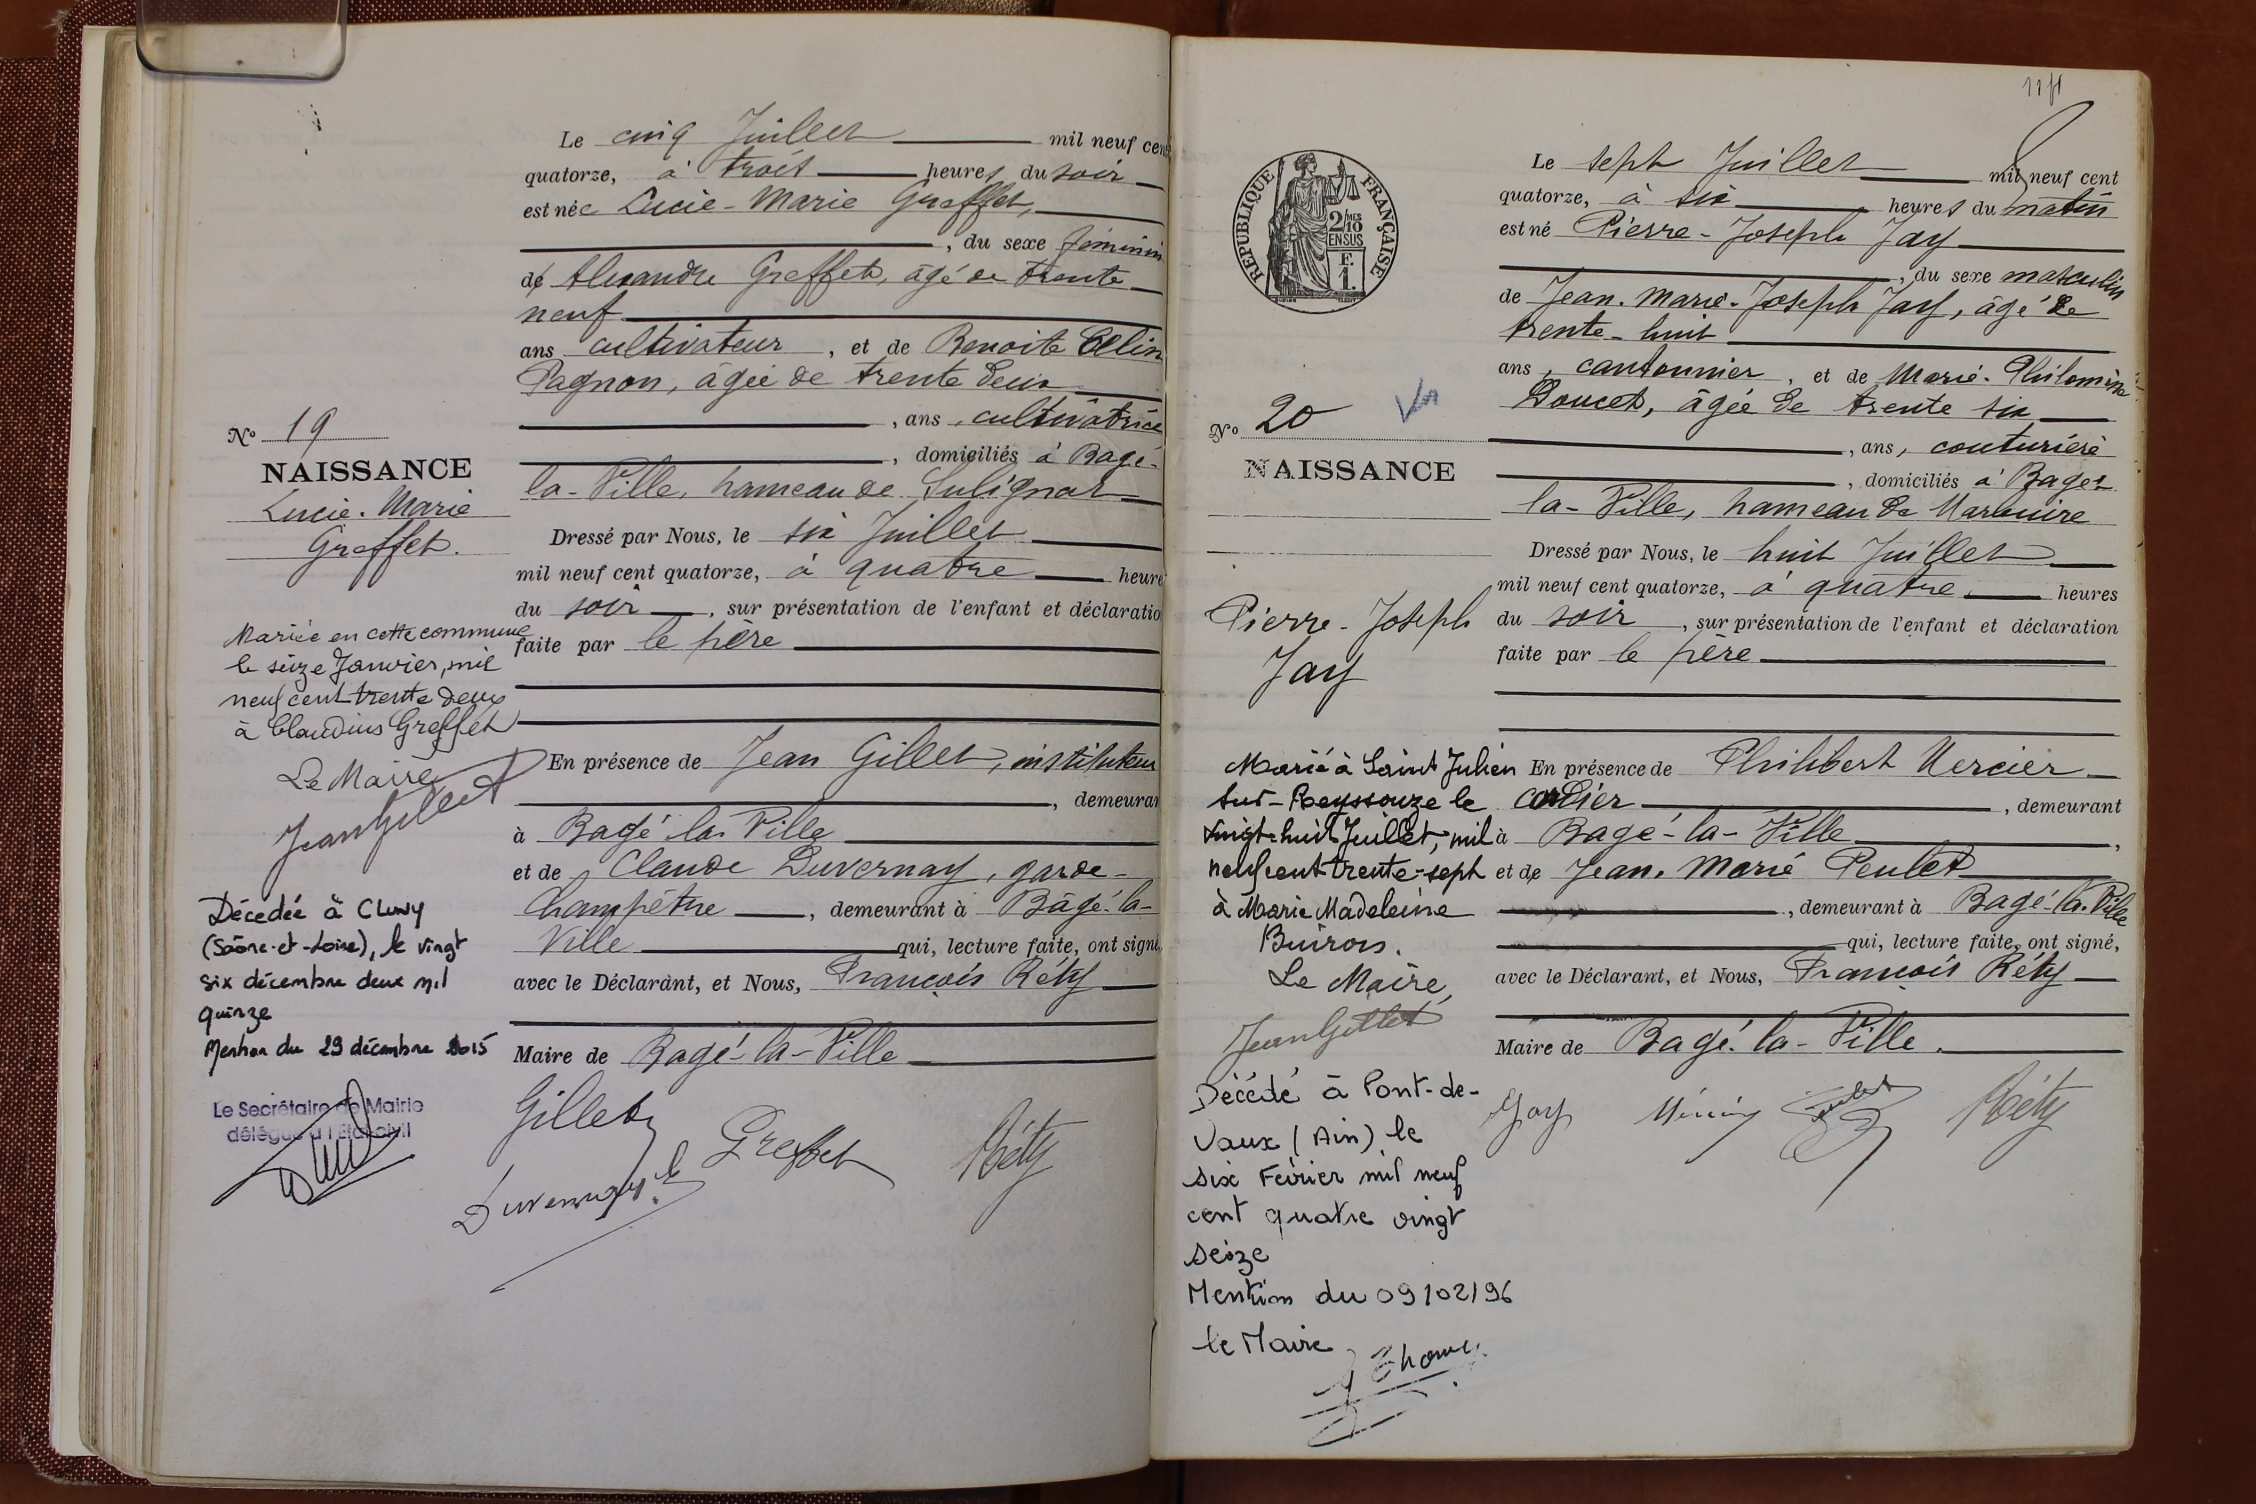 Le cinq Juillet mil neuf cent
quatorze, à trois heures du soir
est née Lucie-Marie Greffet,
, du sexe féminin
de Alexandre Greffet, âgé de trente
neuf
ans cultivateur, et de Benoite Célin
Pagnon, âgée de trente deux
, ans, cultivatrice
, domiciliés à Bagé-
la-Ville, hameau de Sulignat
Dressé par Nous, le six Juillet
mil neuf cent quatorze, à quatre heure
du soir, sur présentation de l'enfant et déclaratio
faite par le père
En présence de Jean Gillet, instituteur
, demeuran
à Bagé-la-Ville
et de Claude Duvernay, garde-
Champêtre, demeurant à Bâgé-la-
Ville qui, lecture faite, ont signé,
avec le Déclarant, et Nous, François Réty
Maire de Bagé-la-Ville
Gillet
Greffet
Réty
Duvernay
No 19
NAISSANCE
Lucie-Marie
Greffet.
Mariée en cette commune
le seize Janvier, mil
neuf cent trente deux
à Claudius Greffet
Le Maire
Jean Gillet
Décédée à Cluny
(Saône-et-Loire), le vingt
six décembre deux mil
quinze
Mention du 29 décembre 2015
Le Secrétaire de Mairie
délégué à l'Etat civil
Le sept Juillet mil neuf cent
quatorze, à six heures du matin
est né Pierre-Joseph Jay
, du sexe masculin
de Jean-Marie-Joseph Jay, âgé de
trente-huit
ans, cantonnier, et de Marie-Philomène
Doucet, âgée de trente six
, ans, couturière
, domiciliés à Bagé-
la-Ville, hameau de
Dressé par Nous, le huit Juillet
mil neuf cent quatorze, à quatre heures
du soir, sur présentation de l'enfant et déclaration
faite par le père
En présence de Philibert Mercier
, demeurant
à Bagé-la-Ville,
et de Jean-Marie Peulet
, demeurant à Bagé-la-Ville
qui, lecture faite, ont signé,
avec le Déclarant, et Nous, François Réty
Maire de Bagé-la-Ville.
Jay
Réty
RÉPUBLIQUE FRANÇAISE
2/10MES
EN SUS
F.
1.
No 20
NAISSANCE
Pierre-Joseph
Jay
Marié à Saint Julien
sur-Reyssouze le
vingt-huit Juillet, mil
neuf cent trente-sept
à Marie Madeleine
Buiron.
Le Maire,
Jean Gillet
Décédé à Pont-de-
Vaux (Ain) le
six Février mil neuf
cent quatre vingt
seize
Mention du 09/02/96
le Maire